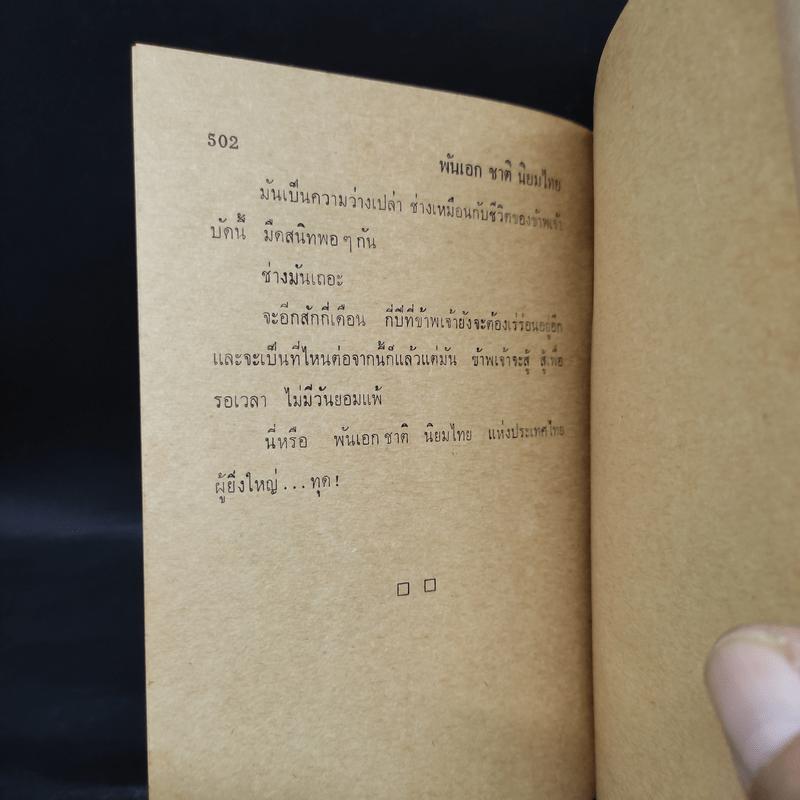 502
พันเอก ชาติ นิยมไทย
มันเป็นความว่างเปล่า ช่างเหมือนกับชีวิตของข้าพเจ้า
บัดนี้ มืดสนิทพอๆกัน
ช่างมันเถอะ
จะอีกสักกี่เดือน กี่ปีที่ข้าพเจ้ายังจะต้องเร่ร่อนอยู่อีก
และจะเป็นที่ไหนต่อจากนี้ก็แล้วแต่มัน ข้าพเจ้าจะสู้ สู้เพื่อ
รอเวลา ไม่มีวันยอมแพ้
นี่หรือ พันเอก ชาติ นิยมไทย แห่งประเทศไทย
ผู้ยิ่งใหญ่...ทุด!